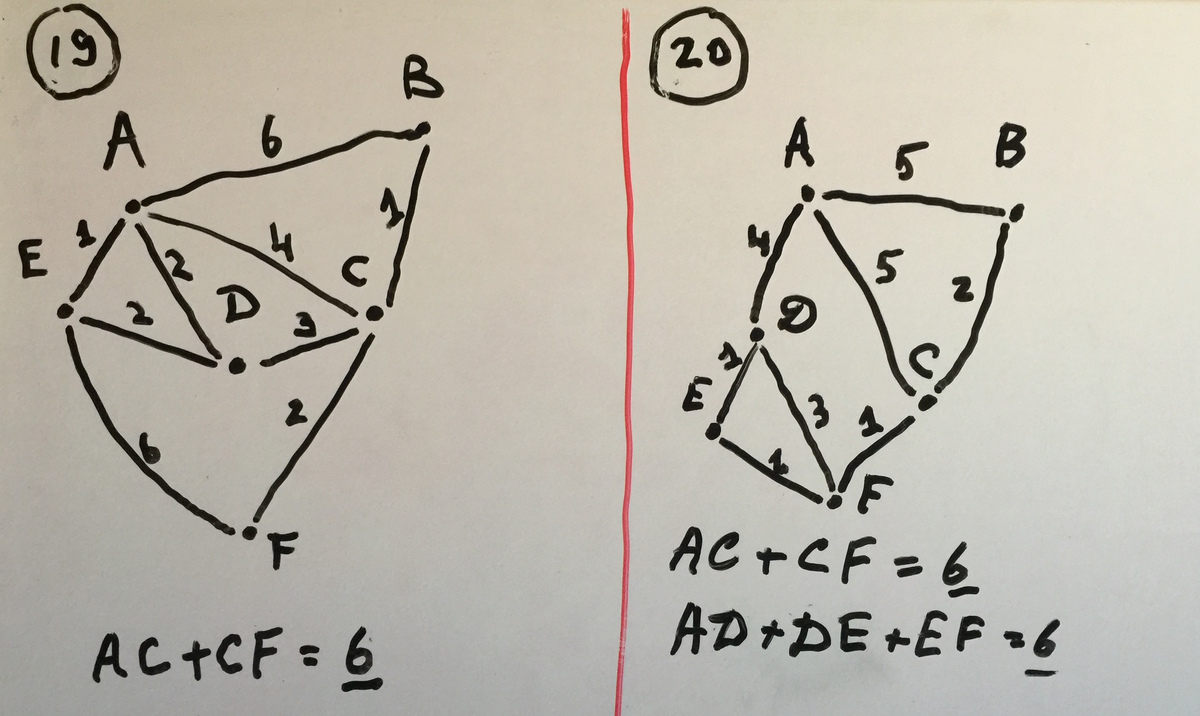 19
B
A
6
1
E
1
2
4
C
2
D
3
2
6
F
AC+CF=6
20
A
5
B
4
5
2
D
1
C
E
3
1
1
F
AC+CF=6
AD+DE+EF=6